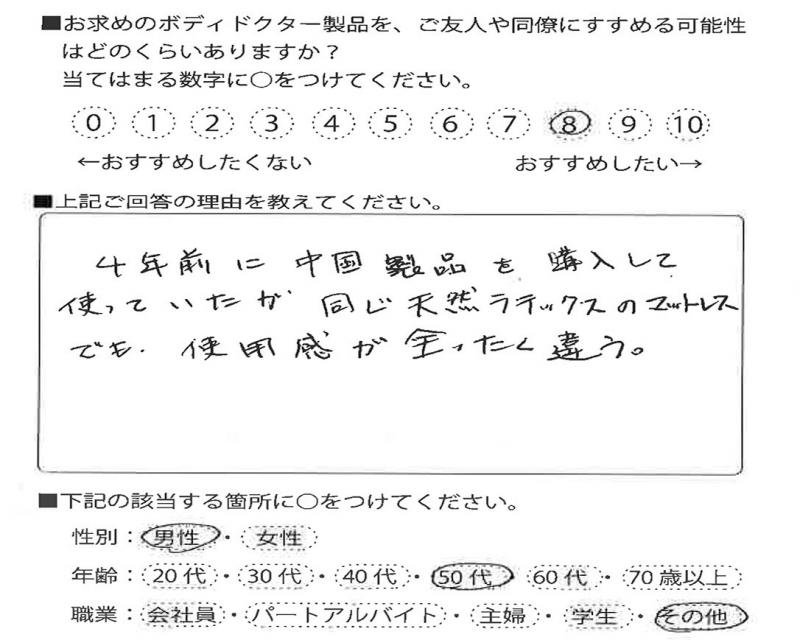 ■お求めのボディドクター製品を、ご友人や同僚にすすめる可能性
はどのくらいありますか？
当てはまる数字に○をつけてください。
0 1 2 3 4 5 6 7 8 9 10
←おすすめしたくない おすすめしたい→
■上記ご回答の理由を教えてください。
4年前に中国製品を購入して
使っていたが同じ天然ラテックスのマットレス
でも、使用感が全ったく違う。
■下記の該当する箇所に○をつけてください。
性別：男性・女性
年齢：20代・30代・40代・50代・60代・70歳以上
職業：会社員・パートアルバイト・主婦・学生・その他